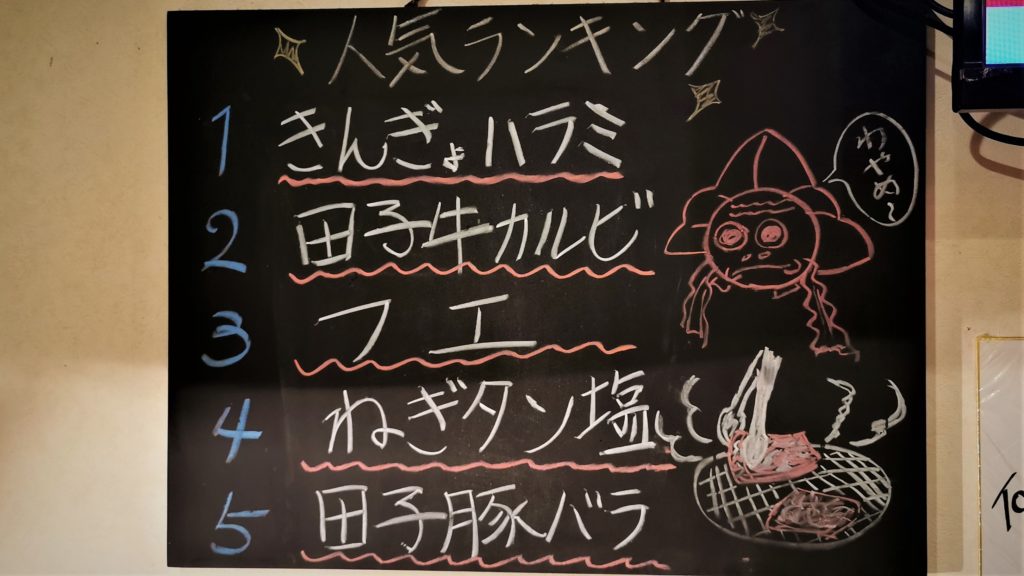 人気ランキング
1 きんぎょハラミ
2 田子牛カルビ
3 フエ
4 ねぎタン塩
5 田子豚バラ
わやめ~